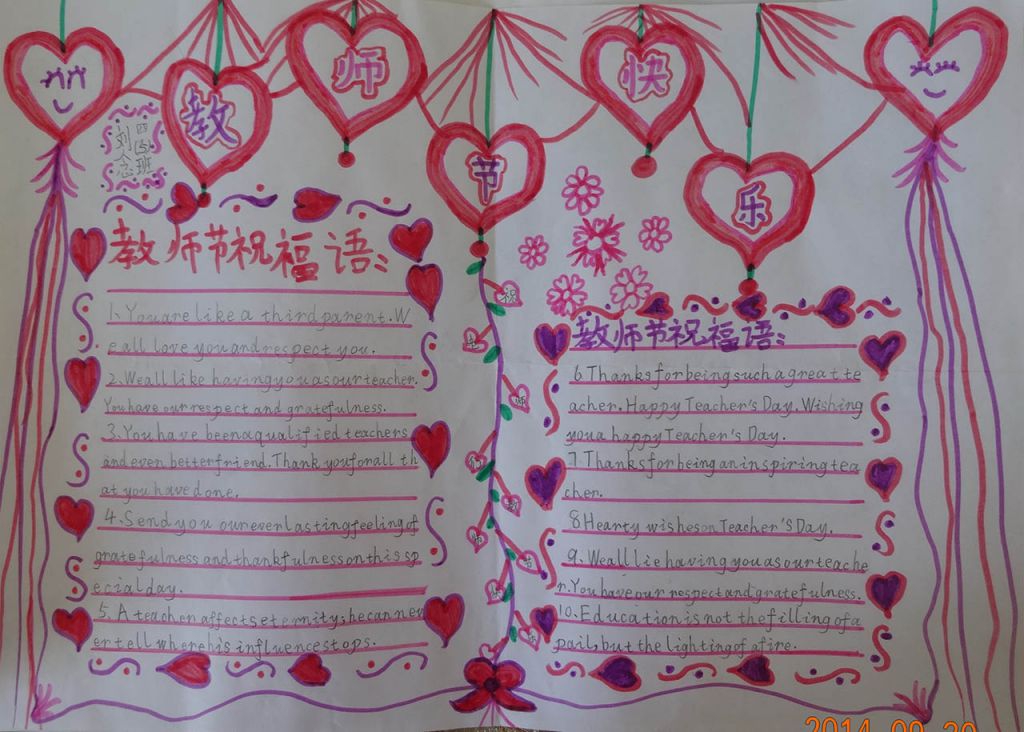 教师节快乐
四(5)班
刘念
教师节祝福语:
1. You are like a third parent. W
e all love you and respect you.
2. We all like having you as our teacher.
You have our respect and gratefulness.
3. You have been a qualified teachers
and even better friend. Thank you for all th
at you have done.
4. Send you our everlasting feeling of
gratefulness and thankfulness on this sp
ecial day.
5. A teacher affects eternity; he can nev
er tell where his influence stops.
教师节祝福语:
6 Thanks for being such a great te
acher. Happy Teacher's Day. Wishing
you a happy Teacher's Day.
7 Thanks for being an inspiring tea
cher.
8 Hearty wishes on Teacher's Day.
9. We all lie having you as our teache
r. You have our respect and gratefulness.
10. Education is not the filling of a
pail, but the lighting of a fire.